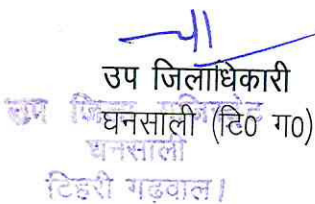 उप जिलाधिकारी
घनसाली (टि0 ग0)
उप जिला मजिस्ट्रेट
घनसाली
टिहरी गढ़वाल।